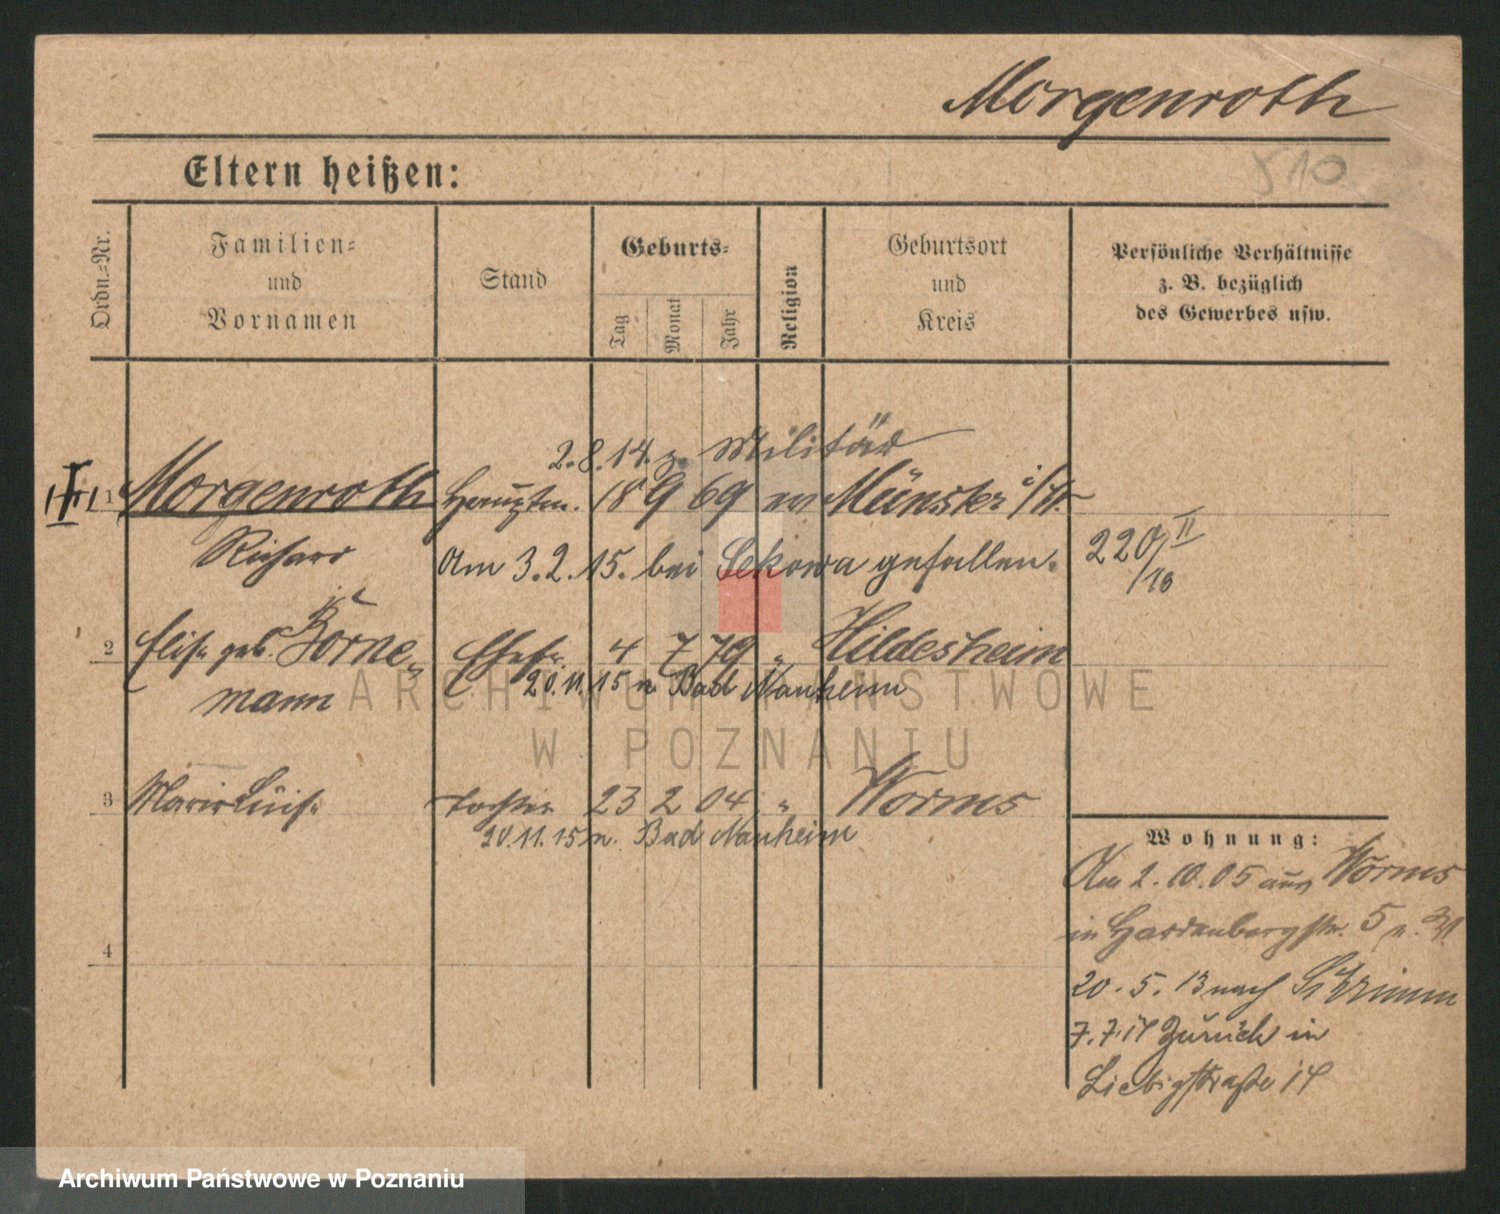 Morgenroth
510
Eltern heißen:
Ordn.-Nr.
Familien-
und
Vornamen
Stand
Geburts-
Tag
Monat
Jahr
Religion
Geburtsort
und
Kreis
Persönliche Verhältnisse
z. B. bezüglich
des Gewerbes usw.
2.8.14. z. Militär
1 Morgenroth Hauptm. 18 9 69 ev Münster i/W.
Richard Am 3.2.15. bei Sekowa gefallen.
220/II
/10
2 Elise geb. Borne- Ehefr. 4 7 79 „ Hildesheim
mann 20.11.15 n. Bad Nauheim
3 Marie Luise Tochter 23 2 04 „ Worms
20.11.15 n. Bad Nauheim
4
Wohnung:
Am 2.10.05 aus Worms
in Hardenbergstr. 5 n.
20.5.13 nach Schrimm
7.7.14 Zurück in
Liebigstraße 14
ARCHIWUM PAŃSTWOWE
W POZNANIU
Archiwum Państwowe w Poznaniu